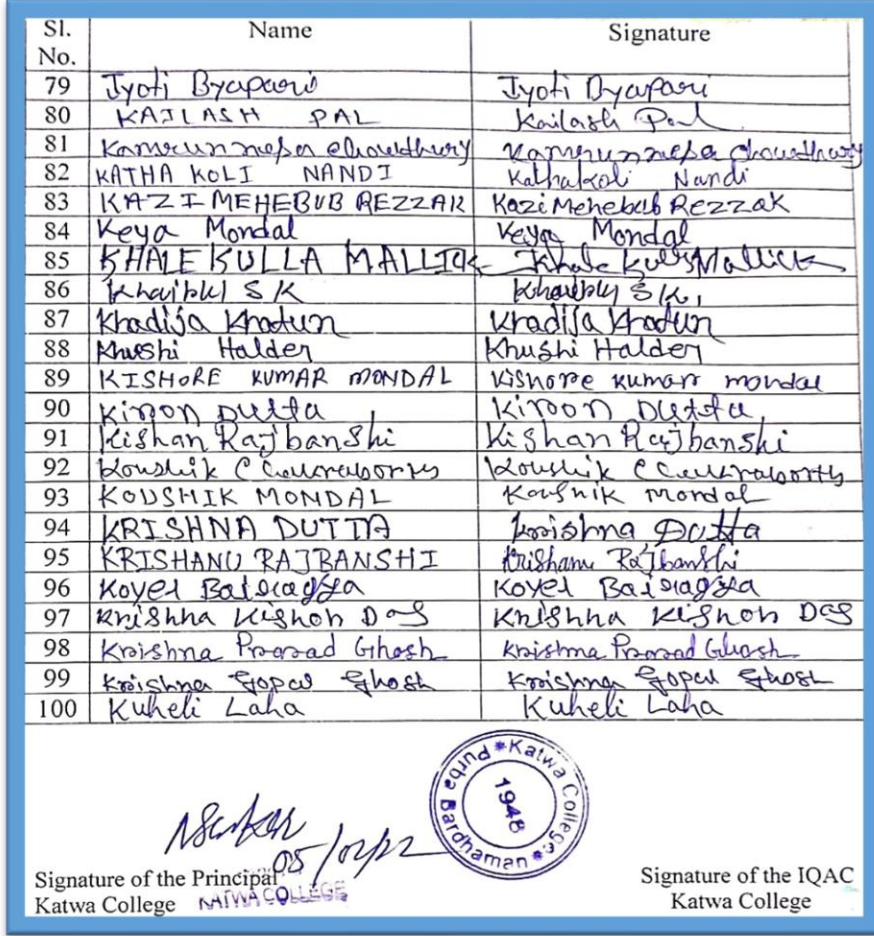 Sl. No. Name Signature
79 Jyoti Byapari Jyoti Byapari
80 KAILASH PAL Kailash Pal
81 Kamrunnesa Chowdhury Kamrunnesa Chowdhury
82 KATHA KOLI NANDI Kathakoli Nandi
83 KAZI MEHEBUB REZZAK Kazi Mehebub Rezzak
84 Keya Mondal Keya Mondal
85 KHALEKULLA MALLICK Khalekulla Mallick
86 SK SK
87 Khadija Khatun Khadija Khatun
88 Khushi Halder Khushi Halder
89 KISHORE KUMAR MONDAL Kishore Kumar mondal
90 Kiron Dutta Kiron Dutta
91 Kishan Rajbanshi Kishan Rajbanshi
92 Koushik Chakraborty Koushik Chakraborty
93 KOUSHIK MONDAL Koushik mondal
94 KRISHNA DUTTA Krishna Dutta
95 KRISHANU RAJBANSHI Krishanu Rajbanshi
96 Koyel Bairagya Koyel Bairagya
97 Krishna Kishor Das Krishna Kishor Das
98 Krishna Prasad Ghosh Krishna Prasad Ghosh
99 Krishna Gopal Ghosh Krishna Gopal Ghosh
100 Kuheli Laha Kuheli Laha
Katwa College * Purba Bardhaman *
1948
Signature of the Principal
Katwa College
KATWA COLLEGE
Signature of the IQAC
Katwa College